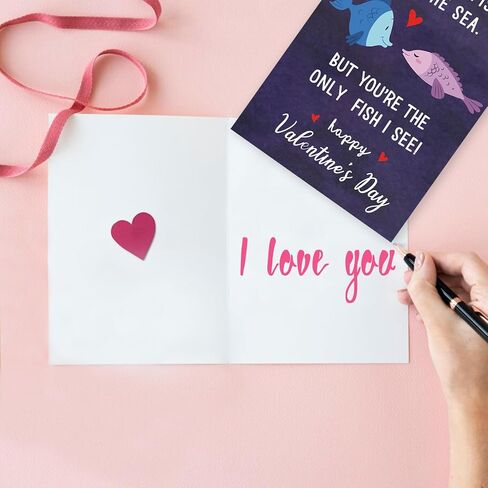 THE SEA.
BUT YOU'RE THE
ONLY FISH I SEE!
happy
Valentine's Day
I love you